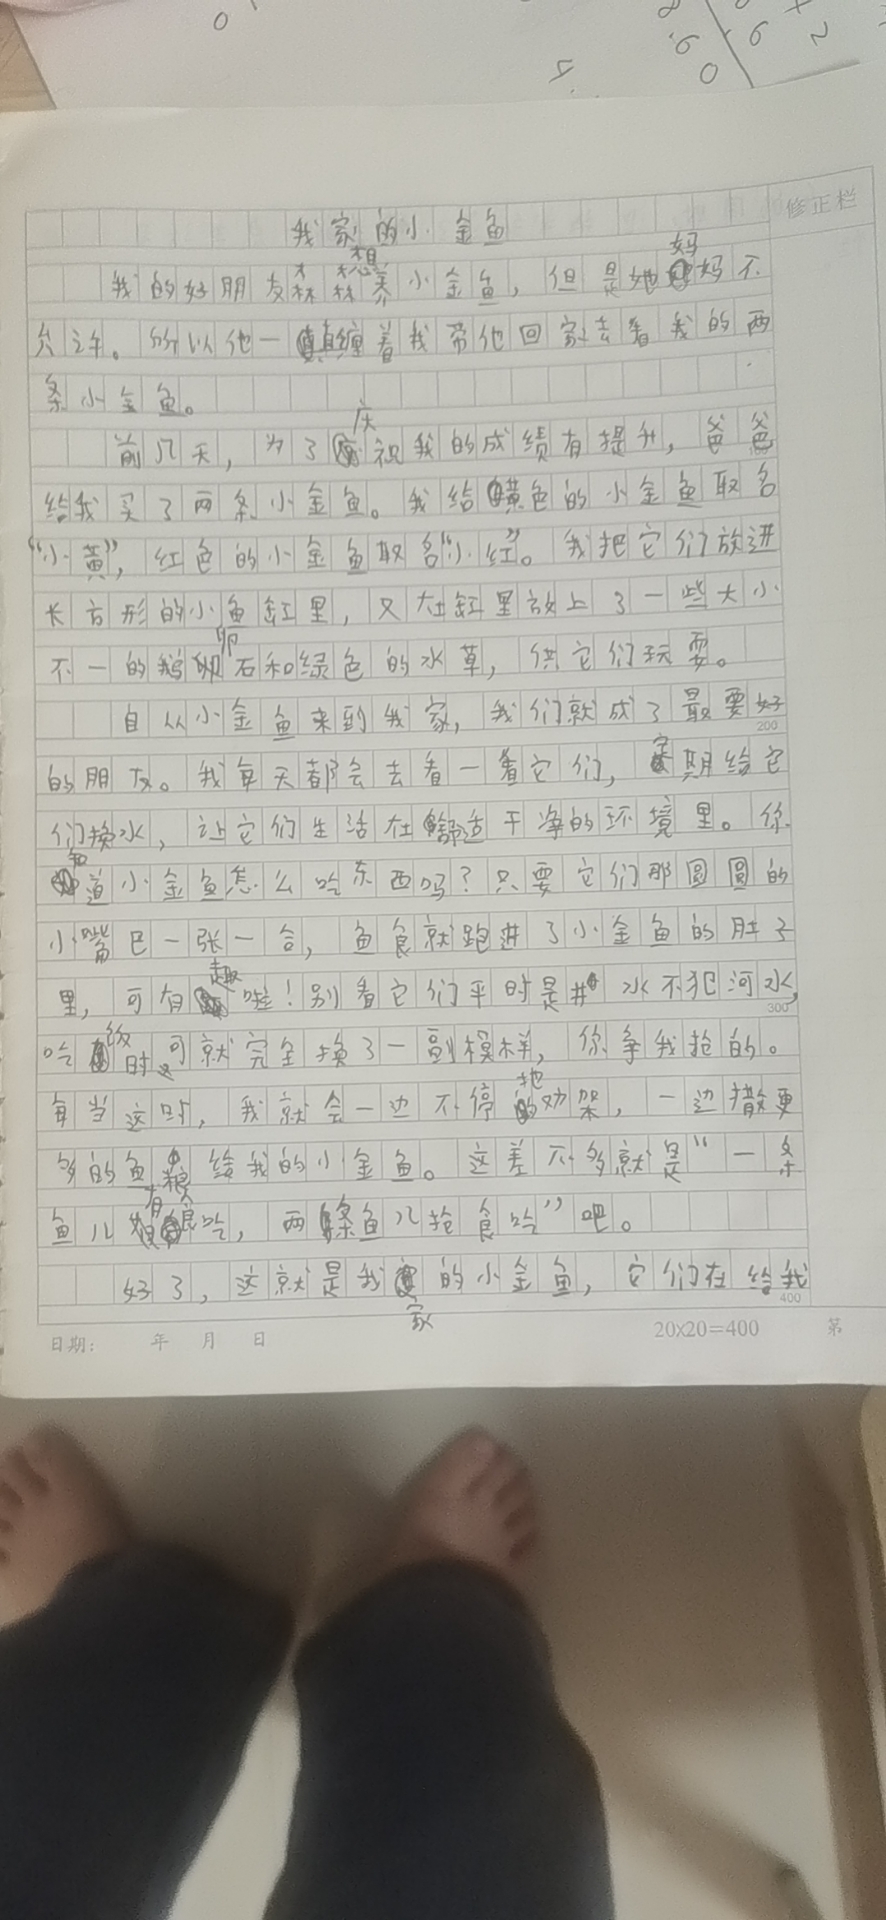 修正栏
我家的小金鱼
我的好朋友森森想养小金鱼，但是她妈妈不
允许。所以他一直缠着我带他回家去看我的两
条小金鱼。
前几天，为了庆祝我的成绩有提升，爸爸
给我买了两条小金鱼。我给黄色的小金鱼取名
“小黄”，红色的小金鱼取名“小红”。我把它们放进
长方形的小鱼缸里，又在缸里放上了一些大小
不一的鹅卵石和绿色的水草，供它们玩耍。
自从小金鱼来到我家，我们就成了最要好
200
的朋友。我每天都会去看一看它们，定期给它
们换水，让它们生活在舒适干净的环境里。你
知道小金鱼怎么吃东西吗？只要它们那圆圆的
小嘴巴一张一合，鱼食就跑进了小金鱼的肚子
里，可有趣啦！别看它们平时是井水不犯河水，
300
吃饭时可就完全换了一副模样，你争我抢的。
每当这时，我就会一边不停地劝架，一边撒更
多的鱼粮给我的小金鱼。这差不多就是“一条
鱼儿有粮吃，两条鱼儿抢食吃”吧。
好了，这就是我家的小金鱼，它们在给我
400
日期： 年 月 日 20x20=400 第